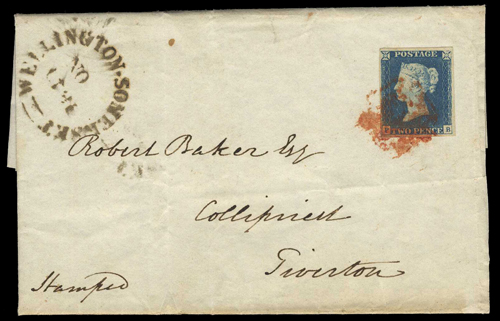 WELLINGTON-SOMERSET
POSTAGE
TWO PENCE
Robert Baker Esq
Collipriest
Tiverton
Stamped